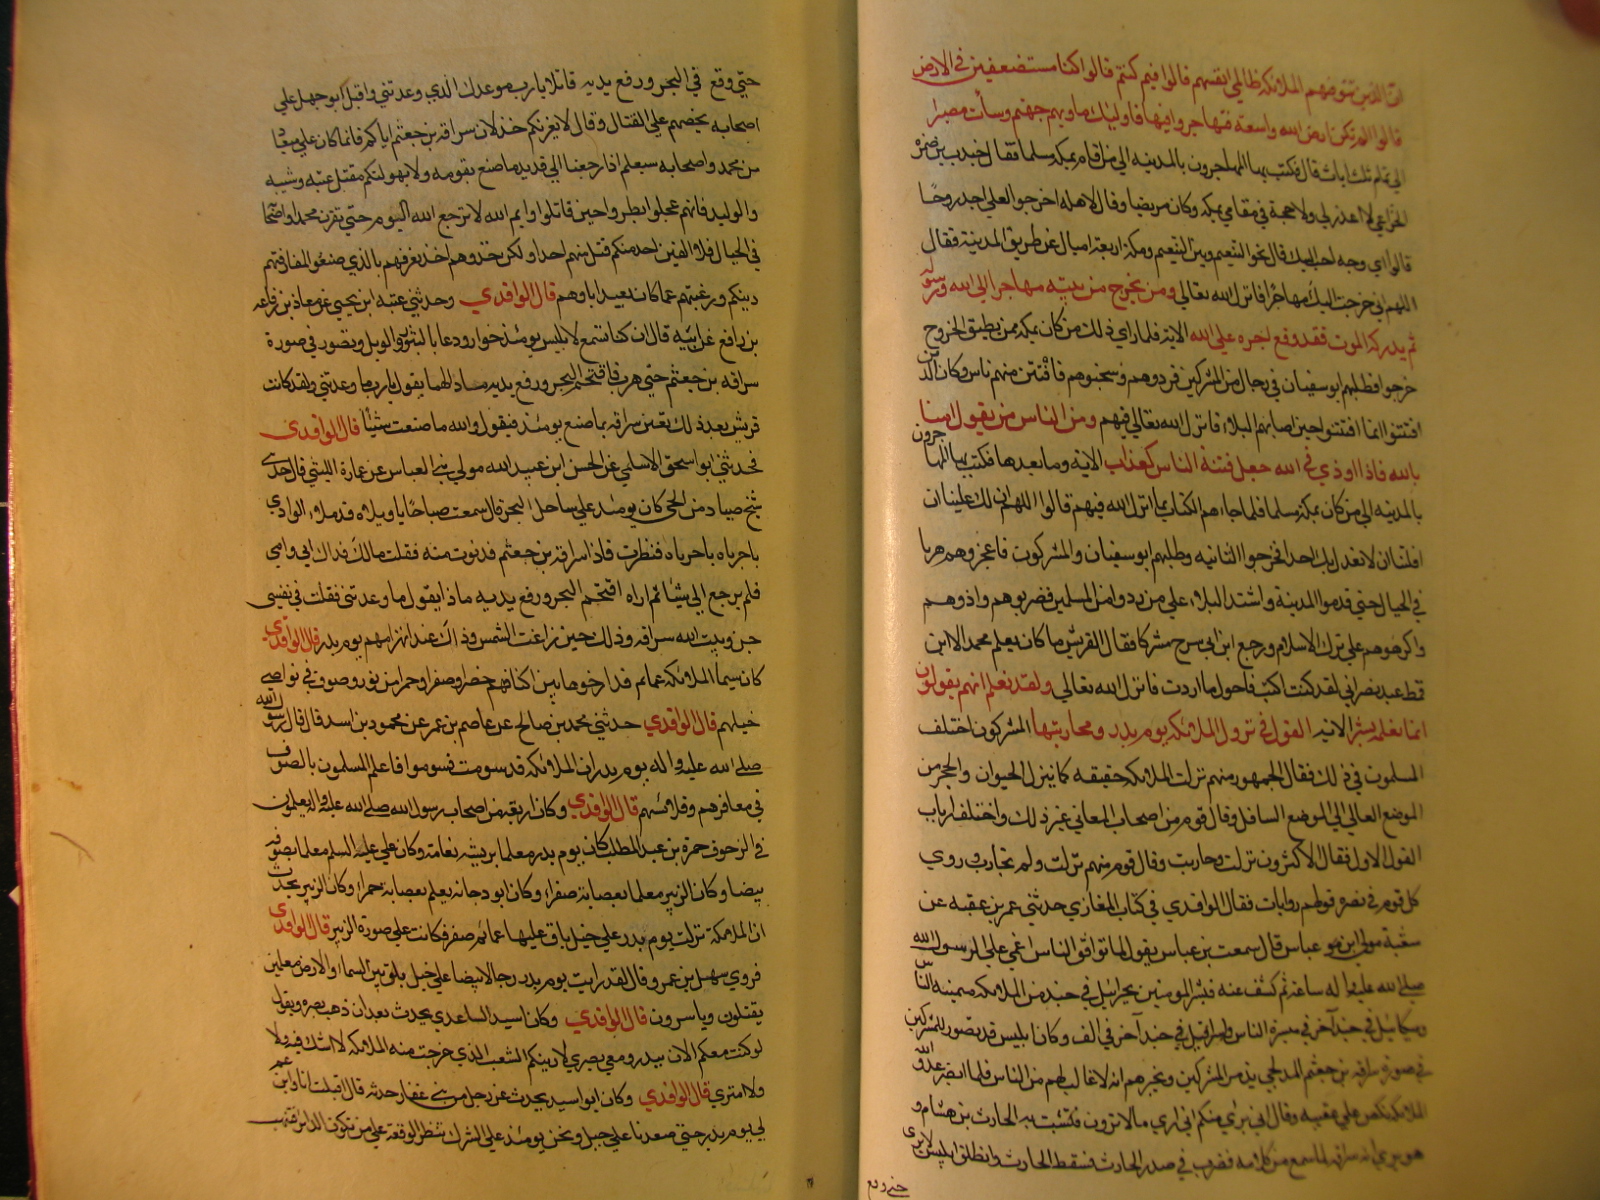 ان الذين توفيهم الملائكة ظالمي انفسهم قالوا فيم كنتم قالوا كنا مستضعفين في الارض
قالوا الم تكن ارض الله واسعة فتهاجروا فيها فاوليك ماويهم جهنم وسأت مصيرا
الي تمام ثلث ايات قال فكتب بها المهاجرون بالمدينه الي من اقام بمكه مسلما فقال جندب بن ضمره
الخزاعي لا عذر لي ولا حجة في مقامي بمكه وكان مريضا وقال لاهله اخرجوا لعلي اجد روحا
قالوا اي وجه احب اليك قال نحو التنعيم وبين التنعيم ومكة اربعة اميال عن طريق المدينة فقال
اللهم اني خرجت اليك مهاجرا فانزل الله تعالي ومن يخرج من بيته مهاجرا الي الله ورسوله
ثم يدركه الموت فقد وقع اجره علي الله الاية فلما راي ذلك من كان بمكه ممن يطيق الخروج
خرجوا فطلبهم ابو سفيان في رجال من المشركين فردوهم وسجنوهم فافتتن منهم ناس وكان الذين
افتتنوا انما افتتنوا حين اصابهم البلاء فانزل الله تعالي فيهم ومن الناس من يقول امنا
بالله فاذا اوذي في الله جعل فتنة الناس كعذاب الاية وما بعدها فكتب بها المهاجرون
بالمدينه الي من كان بمكه مسلما فلما جاءهم الكتاب بما انزل الله فيهم قالوا اللهم ان لك علينا ان
افلتنا ان لا نعدل بك احدا فخرجوا الثانيه وطلبهم ابو سفيان والمشركون فاعجزوهم هربا
في الجبال حتي قدموا المدينة واشتد البلاء علي من ردوا من المسلمين فضربوهم واذوهم
واكرهوهم علي ترك الاسلام ورجع ابن ابي سرح مشركا فقال لقريش ما كان يعلم محمد الا ابن
قمطه عبد نصراني لقد كنت اكتب فاحول ما اردت فانزل الله تعالي ولقد نعلم انهم يقولون
انما يعلمه بشر الاية القول في نزول الملائكه يوم بدر ومحاربتها المشركون اختلف
المسلمون في ذلك فقال الجمهور منهم نزلت الملائكه حقيقه كما ينزل الحيوان والحجر من
الموضع العالي الي الموضع السافل وقال قوم من اصحاب المعاني غير ذلك واختلف ارباب
القول الاول فقال الاكثرون نزلت وحاربت وقال قوم منهم نزلت ولم تحارب وروي
كل قوم في نصرة قولهم روايات فقال الواقدي في كتاب المغازي حدثني عمر بن عقبه عن
شعبة مولي ابن عباس قال سمعت بن عباس يقول لما تواقف الناس اغمي علي رسول الله
صلي الله عليه واله ساعة ثم كشف عنه فبشر المومنين بجبرائيل في جند من الملائكه ميمنه الناس
وميكائيل في جند آخر في ميسرة الناس واسرافيل في جند آخر في الف وكان ابليس قد تصور للمشركين
في صورة سراقه بن جعشم المدلجي يذمر المشركين ويخبرهم انه لا غالب لهم من الناس فلما ابصر عدو الله
الملائكه نكص علي عقبيه وقال اني بري منكم اني اري ما لا ترون فتشبث به الحارث بن هشام و
هو يري انه سراقه لما سمع من كلامه فضرب في صدر الحارث فسقط الحارث وانطلق ابليس لا يري
حتي وقع
حتي وقع في البحر ورفع يديه قائلا يا رب موعدك الذي وعدتني واقبل ابو جهل علي
اصحابه يحضهم علي القتال وقال لا يغرنكم خذلان سراقه بن جعشم اياكم فانما كان علي ميعاد
من محمد واصحابه سيعلم اذا رجعنا الي قديد ما نصنع بقومه ولا يهولنكم مقتل عتبه وشيبه
والوليد فانهم عجلوا وبطروا حين قاتلوا وايم الله لا نرجع الله اليوم حتي نقرن محمدا واصحابه
في الحبال فلا الفين احد منكم قتل منهم احدا ولكن خذوهم اخذا نعرفهم بالذي صنعوا لمفارقتهم
دينكم ورغبتهم عما كان يعبد اباوهم قال الواقدي وحدثني عتبه ابن يحيي عن معاذ بن رفاعه
بن رافع عن ابيه قال ان كنا لنسمع لابليس يومئذ خوارا ودعا بالثبور والويل وتصور في صورة
سراقه بن جعشم حتي هرب فاقتحم البحر ورفع يديه مادا لهما يقول يا رب ما وعدتني ولقد كانت
قريش بعد ذلك تعير سراقه بما صنع يومئذ فيقول والله ما صنعت شئا قال الواقدي
فحدثني ابو اسحق الاسلمي عن الحسن ابن عبيد الله مولي بني العباس عن عمارة الليثي قال حدثني
شيخ صياد من الحي كان يومئذ علي ساحل البحر قال سمعت صياحا يا ويلاه قد ملاء الوادي
يا حرباه يا حرباه فنظرت فاذا سراقة بن جعشم فدنوت منه فقلت مالك فداك ابي وامي
فلم يرجع الي شيئا ثم اراه اقتحم البحر ورفع يديه مادا يقول ما وعدتني فقلت في نفسي
جن وبيت الله سراقه وذلك حين زاغت الشمس وذاك عند انهزامهم يوم بدر قال الواقدي
كان سيما الملائكه عمائم قد ارخوها بين اكتافهم خضرا وصفرا وحمرا من نور وصوف في نواصي
خيلهم قال الواقدي حدثني محمد بن صالح عن عاصم بن عمر عن محمود بن اسد قال قال رسول الله
صلي الله عليه واله يوم بدر ان الملائكه قد سومت فسوموا فاعلم المسلمون بالصوف
في مغافرهم وقلانسهم قال الواقدي وكان اربعة من اصحاب رسول الله صلي الله عليه واله يعلمون
في الزحوف حمزة بن عبد المطلب كان يوم بدر معلما بريشه نعامة وكان علي عليه السلم معلما بصوفه
بيضا وكان الزبير معلما بعصابة صفراء وكان ابو دجانه يعلم بعصابة حمراء وكان الزبير يحدث
ان الملائكة نزلت يوم بدر علي خيل بلق عليها عمائم صفر فكانت علي صورة الزبير قال الواقدي
فروي سهل بن عمرو قال لقد رايت يوم بدر رجالا بيضا علي خيل بلق بين السماء والارض معلمين
يقتلون وياسرون قال الواقدي وكان اسيد الساعدي يحدث بعد ان ذهب بصره ويقول
لو كنت معكم الان ببدر ومعي بصري لاريتكم الشعب الذي خرجت منه الملائكه لا اشك فيه ولا
ولا امتري قال الواقدي وكان ابو اسيد يحدث عن رجل من بني غفار حدثه قال اقبلت انا وابن عم
لي يوم بدر حتي صعدنا علي جبل ونحن يومئذ علي الشرك ننظر الوقعة علي من تكون الدائرة فننتهب